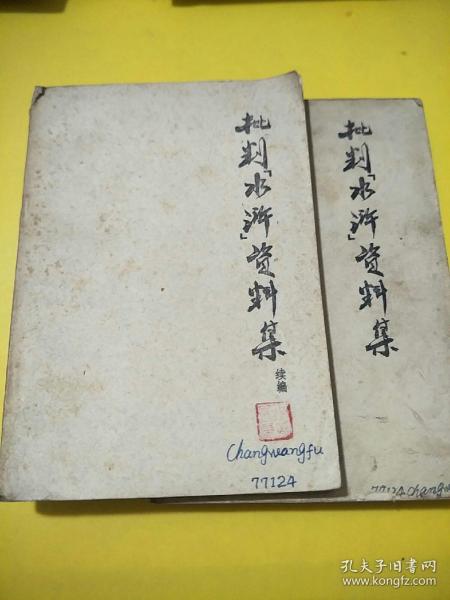 批判「水浒」资料集
续编
Changwangfu
77124
批判「水浒」资料集
77124 Chang
孔夫子旧书网
www.kongfz.com